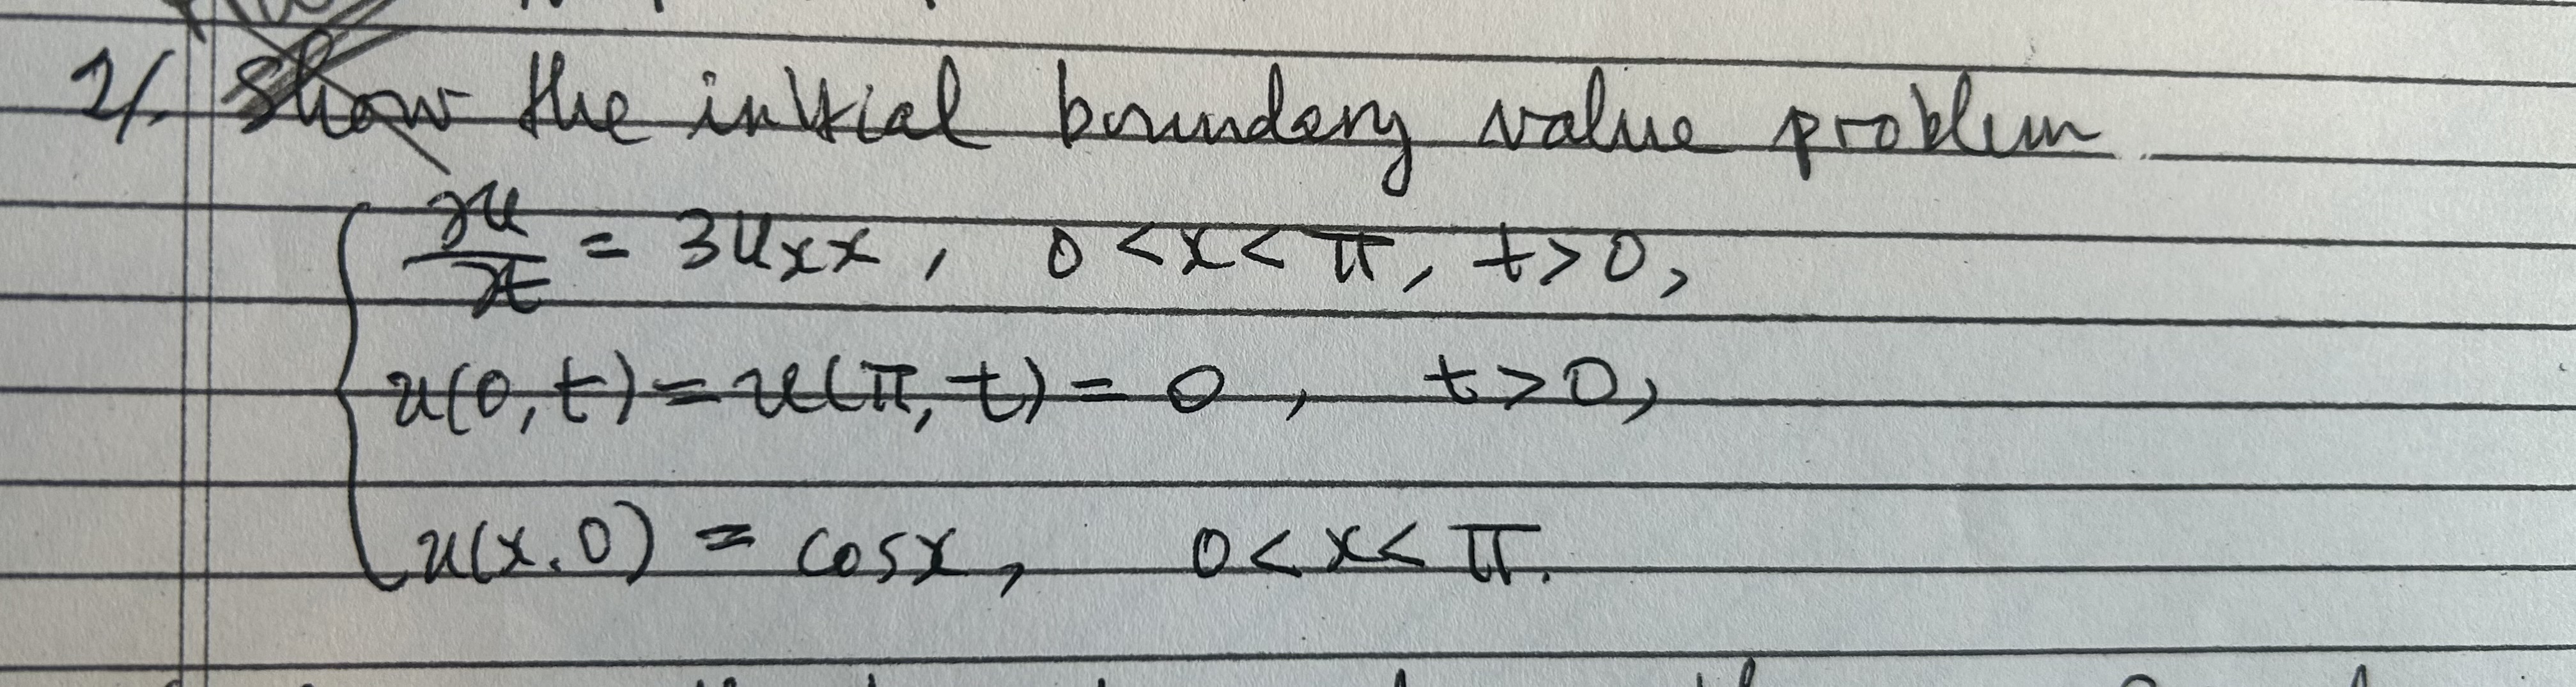 2/. Show the initial boundary value problem
∂u/∂t = 3uxx, 0<x<π, t>0,
u(0,t) = u(π,t) = 0, t>0,
u(x,0) = cosx, 0<x<π.